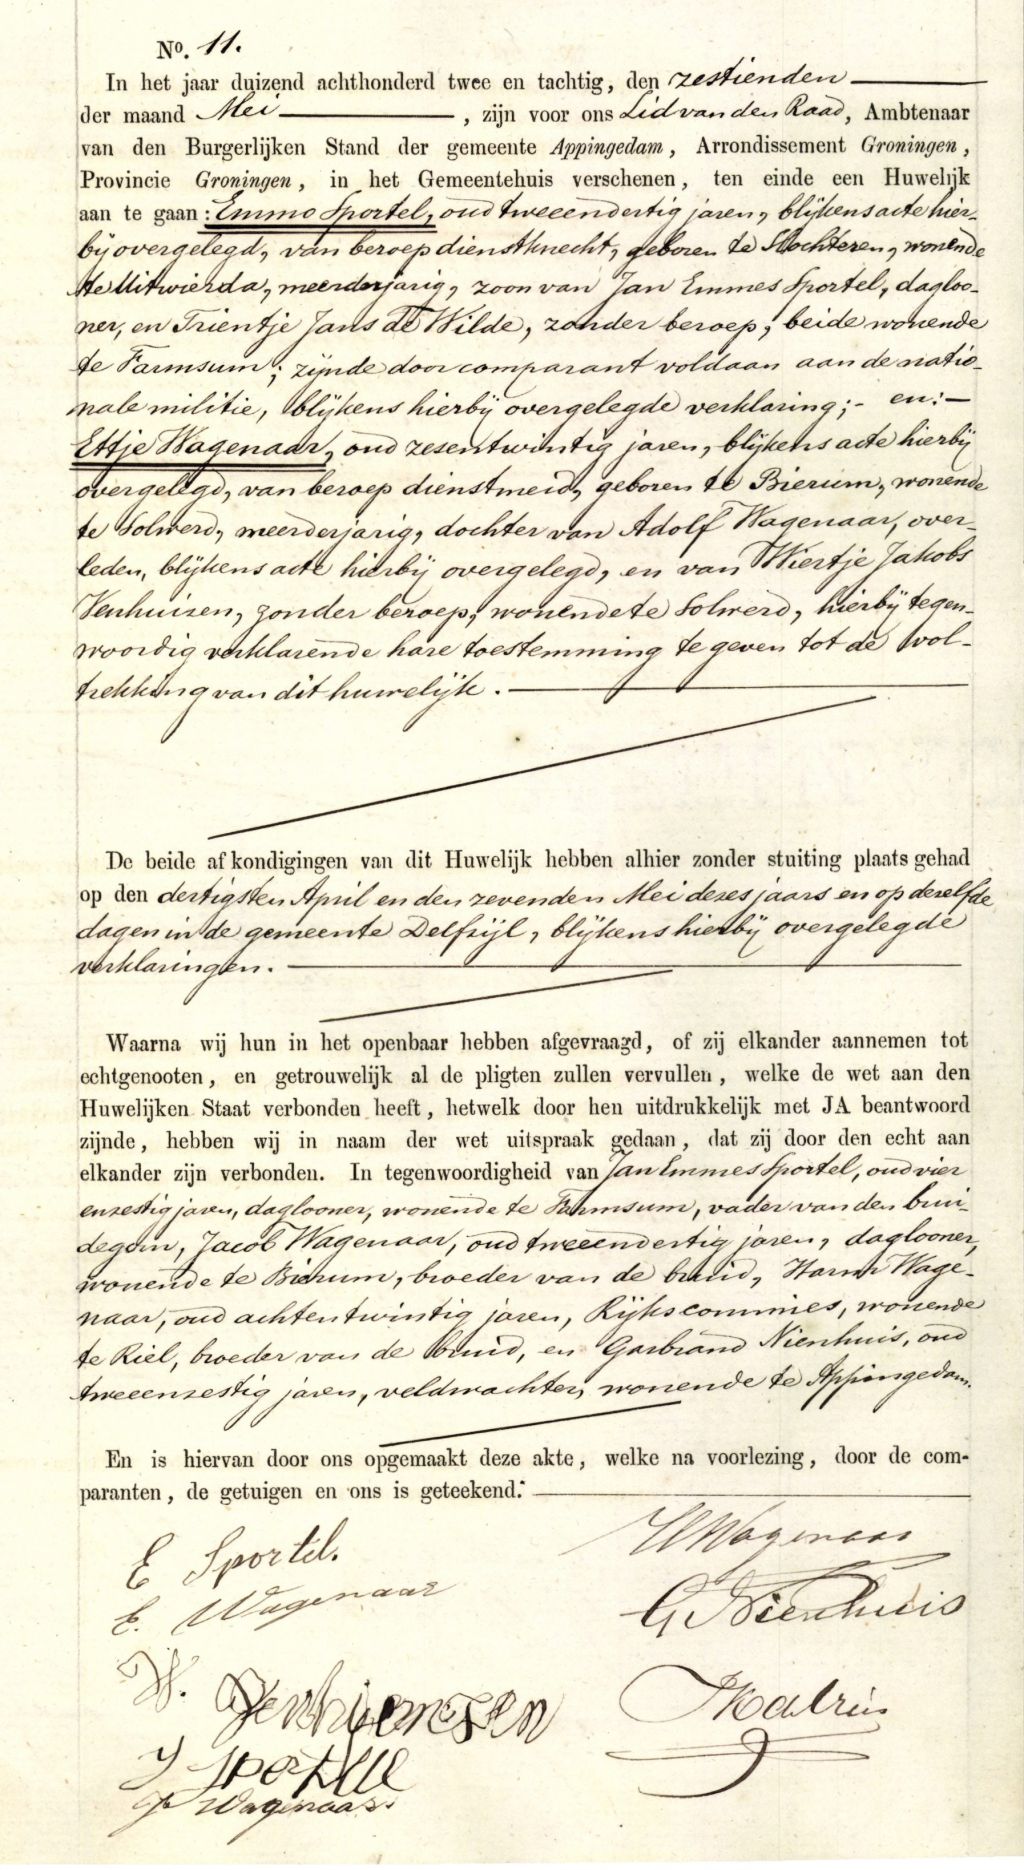 No. 11.
In het jaar duizend achthonderd twee en tachtig, den zestienden
der maand Mei , zijn voor ons Lid van den Raad, Ambtenaar
van den Burgerlijken Stand der gemeente Appingedam, Arrondissement Groningen,
Provincie Groningen, in het Gemeentehuis verschenen, ten einde een Huwelijk
aan te gaan: Emmo Sportel, oud tweeendertig jaren, blijkens acte hier-
bij overgelegd, van beroep dienstknecht, geboren te Slochteren, wonende
te Uitwierda, meerderjarig, zoon van Jan Emmes Sportel, dagloo-
ner, en Trientje Jans de Wilde, zonder beroep, beide wonende
te Farmsum; zijnde door comparant voldaan aan de natio-
nale militie, blijkens hierbij overgelegde verklaring;- en:-
Ettje Wagenaar, oud zesentwintig jaren, blijkens acte hierbij
overgelegd, van beroep dienstmeid, geboren te Bierum, wonende
te Solwerd, meerderjarig, dochter van Adolf Wagenaar, over-
leden, blijkens acte hierbij overgelegd, en van Wiertje Jakobs
Venhuizen, zonder beroep, wonende te Solwerd, hierbij tegen-
woordig verklarende hare toestemming te geven tot de vol-
trekking van dit huwelijk.
De beide afkondigingen van dit Huwelijk hebben alhier zonder stuiting plaats gehad
op den dertigsten April en den zevenden Mei dezes jaars en op dezelfde
dagen in de gemeente Delfzijl, blijkens hierbij overgelegde
verklaringen.
Waarna wij hun in het openbaar hebben afgevraagd, of zij elkander aannemen tot
echtgenooten, en getrouwelijk al de pligten zullen vervullen, welke de wet aan den
Huwelijken Staat verbonden heeft, hetwelk door hen uitdrukkelijk met JA beantwoord
zijnde, hebben wij in naam der wet uitspraak gedaan, dat zij door den echt aan
elkander zijn verbonden. In tegenwoordigheid van Jan Emmes Sportel, oud vier
enzestig jaren, daglooner, wonende te Farmsum, vader van den brui-
degom, Jacob Wagenaar, oud tweeendertig jaren, daglooner,
wonende te Bierum, broeder van de bruid, Harm Wage-
naar, oud achtentwintig jaren, Rijkscommies, wonende
te Riel, broeder van de bruid, en Garbrand Nienhuis, oud
tweeenzestig jaren, veldwachter, wonende te Appingedam.
En is hiervan door ons opgemaakt deze akte, welke na voorlezing, door de com-
paranten, de getuigen en ons is geteekend.
E Sportel.
E. Wagenaar
W. Venhuizen
J Sportel
J Wagenaar
H Wagenaar
G. Nienhuis